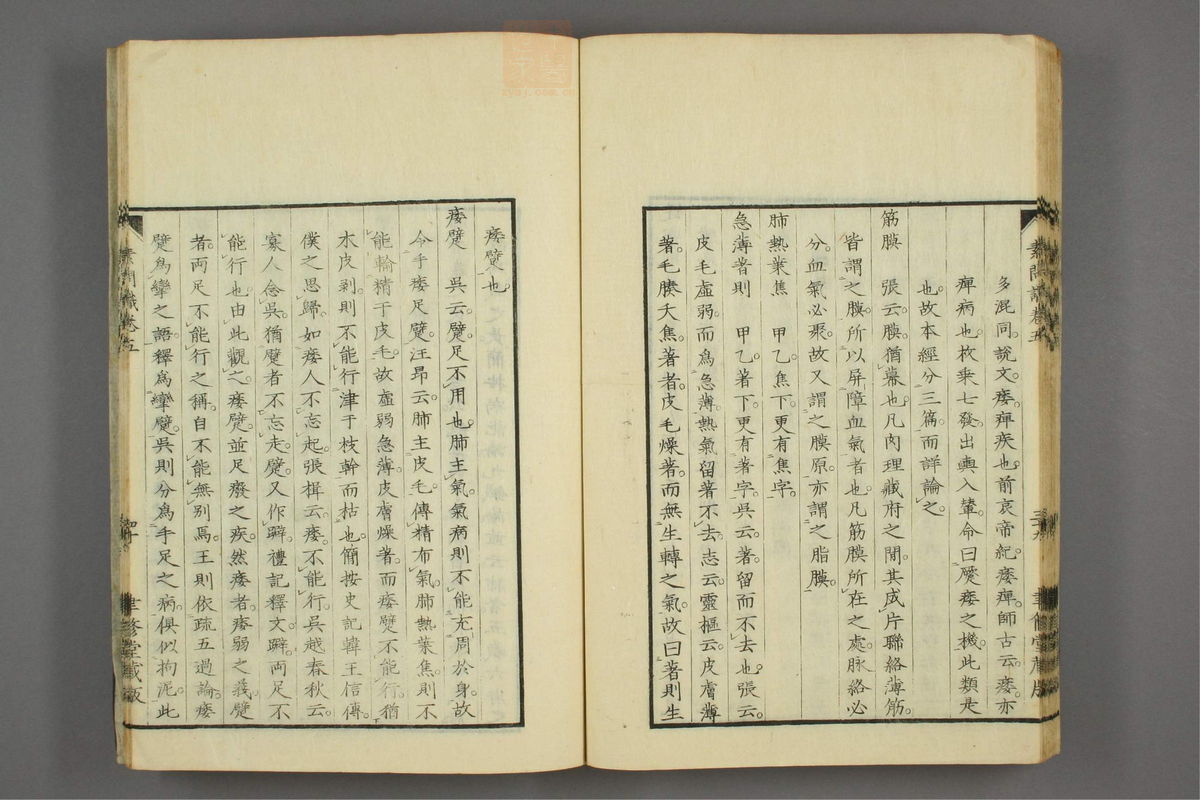 多混同。說文。痿。痺疾也。前哀帝紀。痿痺。師古云。痿。亦
痺病也。枚乘七發。出輿入輦。命曰蹷痿之機。此類是
也。故本經分三篇。而詳論之。
筋膜　張云。膜。猶幕也。凡肉理藏府之間。其成片聯絡薄筋。
皆謂之膜。所以屏障血氣者也。凡筋膜所在之處。脉絡必
分。血氣必聚。故又謂之膜原。亦謂之脂膜。
肺熱葉焦　甲乙。焦下。更有焦字。
急薄著則　甲乙。著下。更有著字。吳云。著。留而不去也。張云。
皮毛虛弱。而爲急薄。熱氣留著不去。志云。靈樞云。皮膚薄
著。毛腠夭焦。著者。皮毛燥著。而無生轉之氣。故曰著則生
痿躄也。
痿躄　吳云。躄。足不用也。肺主氣。氣病則不能充周於身。故
令手痿足躄。汪昂云。肺主皮毛。傳精布氣。肺熱葉焦。則不
能輸精于皮毛。故虛弱急薄。皮膚燥著。而痿躄不能行。猶
木皮剥。則不能行津于枝幹而枯也。簡按史記韓王信傳。
僕之思歸。如痿人不忘起。張揖云。痿不能行。吳越春秋云。
寡人念吳。猶躄者不忘走。躄。又作躃。禮記釋文。躃。兩足不
能行也。由此觀之。痿躄。並足癈之疾。然痿者。痿弱之義。躄
者。兩足不能行之稱。自不能無别焉。王則依疏五過論。痿
躄爲攣之語。釋爲攣躄。吳則分爲手足之病。俱似拘泥。此
素問識卷五
三十九
聿修堂藏版
素問識卷五
四十
聿修堂藏版
zysj.com.cn